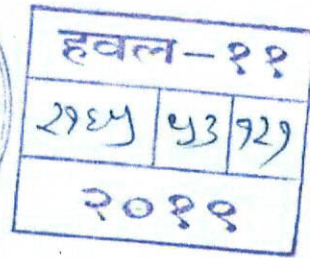 हवल-११
२१६५ ५३ १२१
२०१९